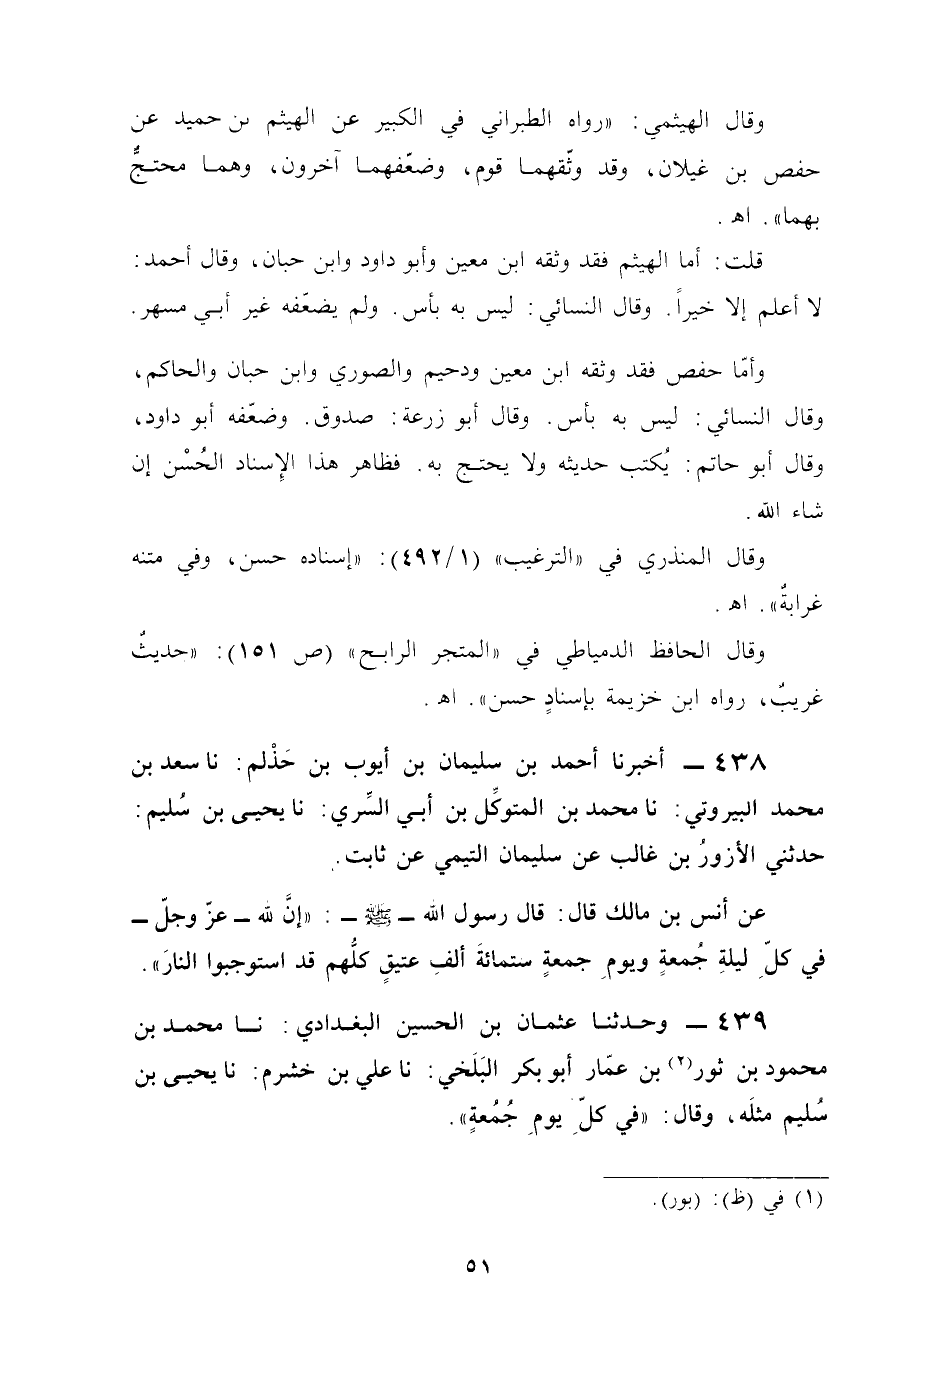 وقال الهيثمي: «رواه الطبراني في الكبير عن الهيثم بن حميد عن
حفص بن غيلان، وقد وثّقهما قوم، وضعّفهما آخرون، وهما محتجٌّ
بهما». اهـ.
قلت: أما الهيثم فقد وثقه ابن معين وأبو داود وابن حبان، وقال أحمد:
لا أعلم إلا خيراً. وقال النسائي: ليس به بأس. ولم يضعّفه غير أبي مسهر.
وأمّا حفص فقد وثقه ابن معين ودحيم والصوري وابن حبان والحاكم،
وقال النسائي: ليس به بأس. وقال أبو زرعة: صدوق. وضعّفه أبو داود،
وقال أبو حاتم: يُكتب حديثه ولا يحتج به. فظاهر هذا الإِسناد الحُسْن إن
شاء الله.
وقال المنذري في «الترغيب» (٤٩٢/١): «إسناده حسن، وفي متنه
غرابةٌ». اهـ.
وقال الحافظ الدمياطي في «المتجر الرابح» (ص ١٥١): «حديثٌ
غريبٌ، رواه ابن خزيمة بإسنادٍ حسن». اهـ.
٤٣٨ ــ أخبرنا أحمد بن سليمان بن أيوب بن حَذْلم: نا سعد بن
محمد البيروتي: نا محمد بن المتوكِّل بن أبي السِّري: نا يحيى بن سُليم:
حدثني الأزورُ بن غالب عن سليمان التيمي عن ثابت.
عن أنس بن مالك قال: قال رسول الله ــ ﷺ ــ : «إنَّ لله ــ عزّ وجلّ ــ
في كلِّ ليلةِ جُمعةٍ ويومِ جمعةٍ ستمائةَ ألفِ عتيقٍ كلُّهم قد استوجبوا النارَ».
٤٣٩ ــ وحدثنا عثمان بن الحسين البغدادي: نا محمد بن
محمود بن ثور(٢) بن عمّار أبو بكر البَلَخي: نا علي بن خشرم: نا يحيى بن
سُليم مثلَه، وقال: «في كلِّ يومِ جُمُعةٍ».
(١) في (ظ): (بور).
٥١